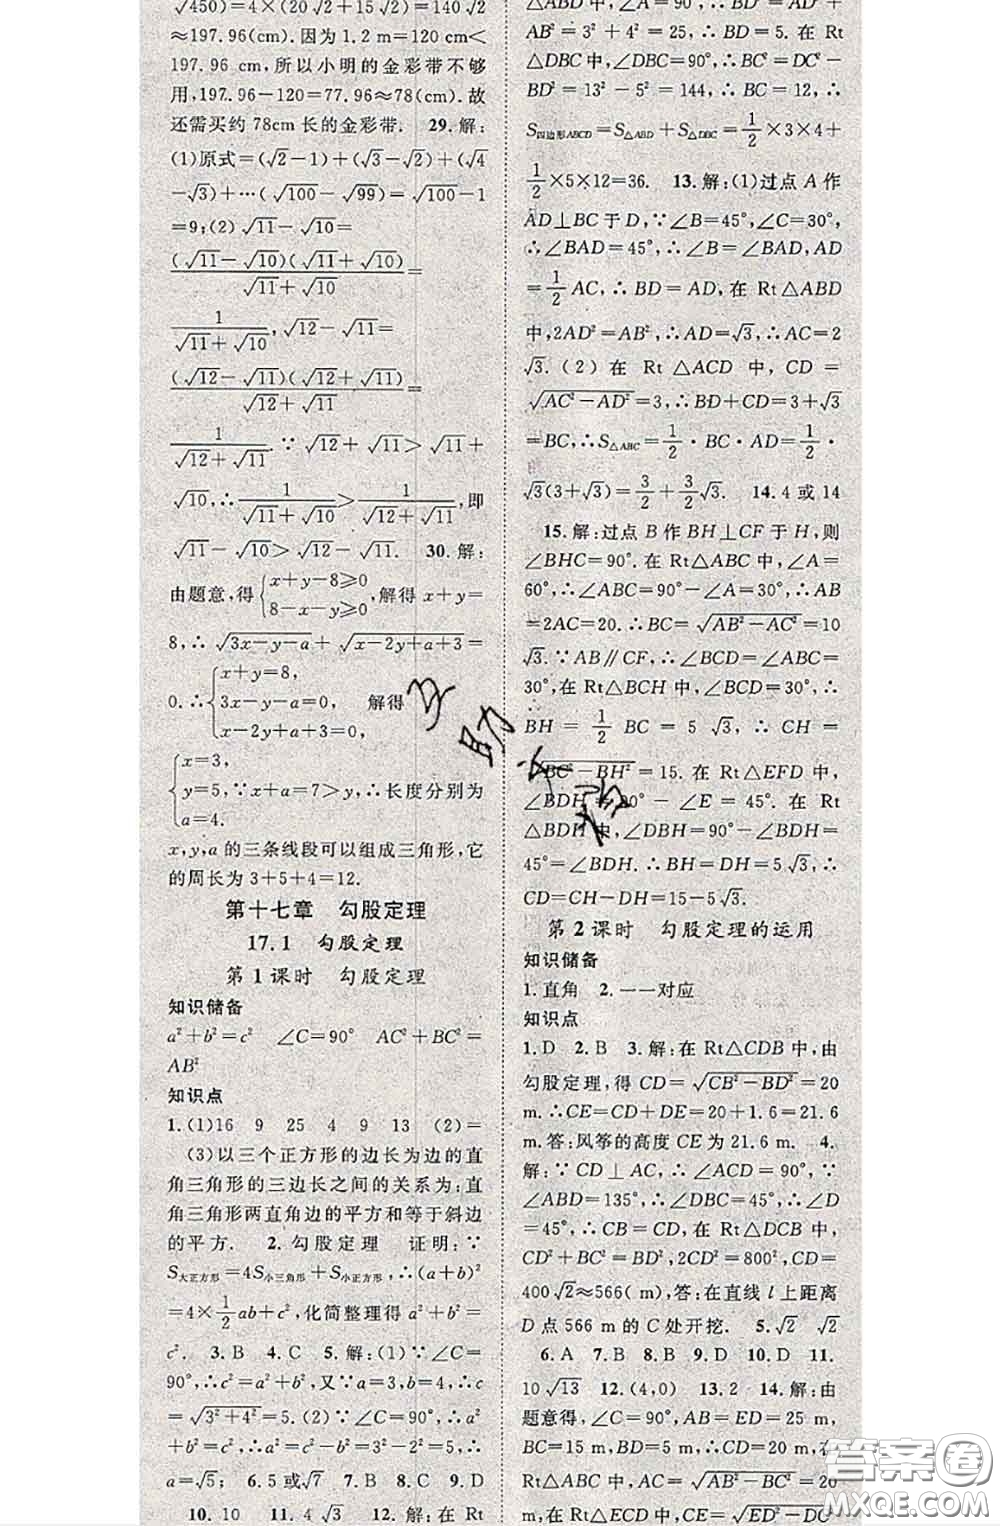 √450)=4×(20√2+15√2)=140√2
≈197.96(cm).因为1.2 m=120 cm<
197.96 cm,所以小明的金彩带不够
用,197.96-120=77.96≈78(cm).故
还需买约78cm长的金彩带. 29.解:
(1)原式=(√2-1)+(√3-√2)+(√4
-√3)+…(√100-√99)=√100-1
=9;(2)√11-√10=
(√11-√10)(√11+√10)/(√11+√10)=
1/(√11+√10),√12-√11=
(√12-√11)(√12+√11)/(√12+√11)=
1/(√12+√11).∵√12+√11>√11+
√10,∴1/(√11+√10)>1/(√12+√11),即
√11-√10>√12-√11. 30.解:
由题意,得{x+y-8≥0 8-x-y≥0,解得x+y=
8,∴√(3x-y-a)+√(x-2y+a+3)=
0.∴{x+y=8, 3x-y-a=0, x-2y+a+3=0, 解得
{x=3, y=5,∵x+a=7>y,∴长度分别为 a=4.
x,y,a的三条线段可以组成三角形,它
的周长为3+5+4=12.
第十七章 勾股定理
17.1 勾股定理
第1课时 勾股定理
知识储备
a²+b²=c² ∠C=90° AC²+BC²=
AB²
知识点
1.(1)16 9 25 4 9 13 (2)=
(3)以三个正方形的边长为边的直
角三角形的三边长之间的关系为:直
角三角形两直角边的平方和等于斜边
的平方. 2.勾股定理 证明:∵
S大正方形=4S小三角形+S小正方形,∴(a+b)²
=4×1/2ab+c²,化简整理得a²+b²=
c². 3.B 4.C 5.解:(1)∵∠C=
90°,∴c²=a²+b²,又∵a=3,b=4,∴c
=√(3²+4²)=5.(2)∵∠C=90°,∴c²
=a²+b²,∴a²=c²-b²=3²-2²=5,∴
a=√5; 6.5或√7 7.B 8.C 9.D
10.10 11.4√3 12.解:在Rt
△ABD中,∠A=90°,∴BD²=AD²+
AB²=3²+4²=25,∴BD=5.在Rt
△DBC中,∠DBC=90°,∴BC²=DC²-
BD²=13²-5²=144,∴BC=12,∴
S四边形ABCD=S△ABD+S△DBC=1/2×3×4+
1/2×5×12=36. 13.解:(1)过点A作
AD⊥BC于D,∵∠B=45°,∠C=30°,
∴∠BAD=45°,∴∠B=∠BAD,AD
=1/2AC,∴BD=AD,在Rt△ABD
中,2AD²=AB²,∴AD=√3,∴AC=2
√3.(2)在Rt△ACD中,CD=
√(AC²-AD²)=3,∴BD+CD=3+√3
=BC,∴S△ABC=1/2·BC·AD=1/2·
√3(3+√3)=3/2+3/2√3. 14.4或14
15.解:过点B作BH⊥CF于H,则
∠BHC=90°.在Rt△ABC中,∠A=
60°,∴∠ABC=90°-∠A=30°,∴AB
=2AC=20.∴BC=√(AB²-AC²)=10
√3.∵AB∥CF,∴∠BCD=∠ABC=
30°,在Rt△BCH中,∠BCD=30°,∴
BH=1/2BC=5√3,∴CH=
√(BC²-BH²)=15.在Rt△EFD中,
∠BDH=90°-∠E=45°.在Rt
△BDH中,∠DBH=90°-∠BDH=
45°=∠BDH.∴BH=DH=5√3,∴
CD=CH-DH=15-5√3.
第2课时 勾股定理的运用
知识储备
1.直角 2.一一对应
知识点
1.D 2.B 3.解:在Rt△CDB中,由
勾股定理,得CD=√(CB²-BD²)=20
m.∴CE=CD+DE=20+1.6=21.6
m.答:风筝的高度CE为21.6 m. 4.
解:∵CD⊥AC,∴∠ACD=90°,∵
∠ABD=135°,∴∠DBC=45°,∴∠D
=45°,∴CB=CD,在Rt△DCB中,
CD²+BC²=BD²,2CD²=800²,CD=
400√2≈566(m),答:在直线l上距离
D点566 m的C处开挖. 5.√2 √2
6.A 7.B 8.B 9.D 10.D 11.
10√13 12.(4,0) 13.2 14.解:由
题意得,∠C=90°,AB=ED=25 m,
BC=15 m,BD=5 m,∴CD=20 m,在
Rt△ABC中,AC=√(AB²-BC²)=20
m,在Rt△ECD中,CE=√(ED²-DC²)
答案圈
MXQE.COM